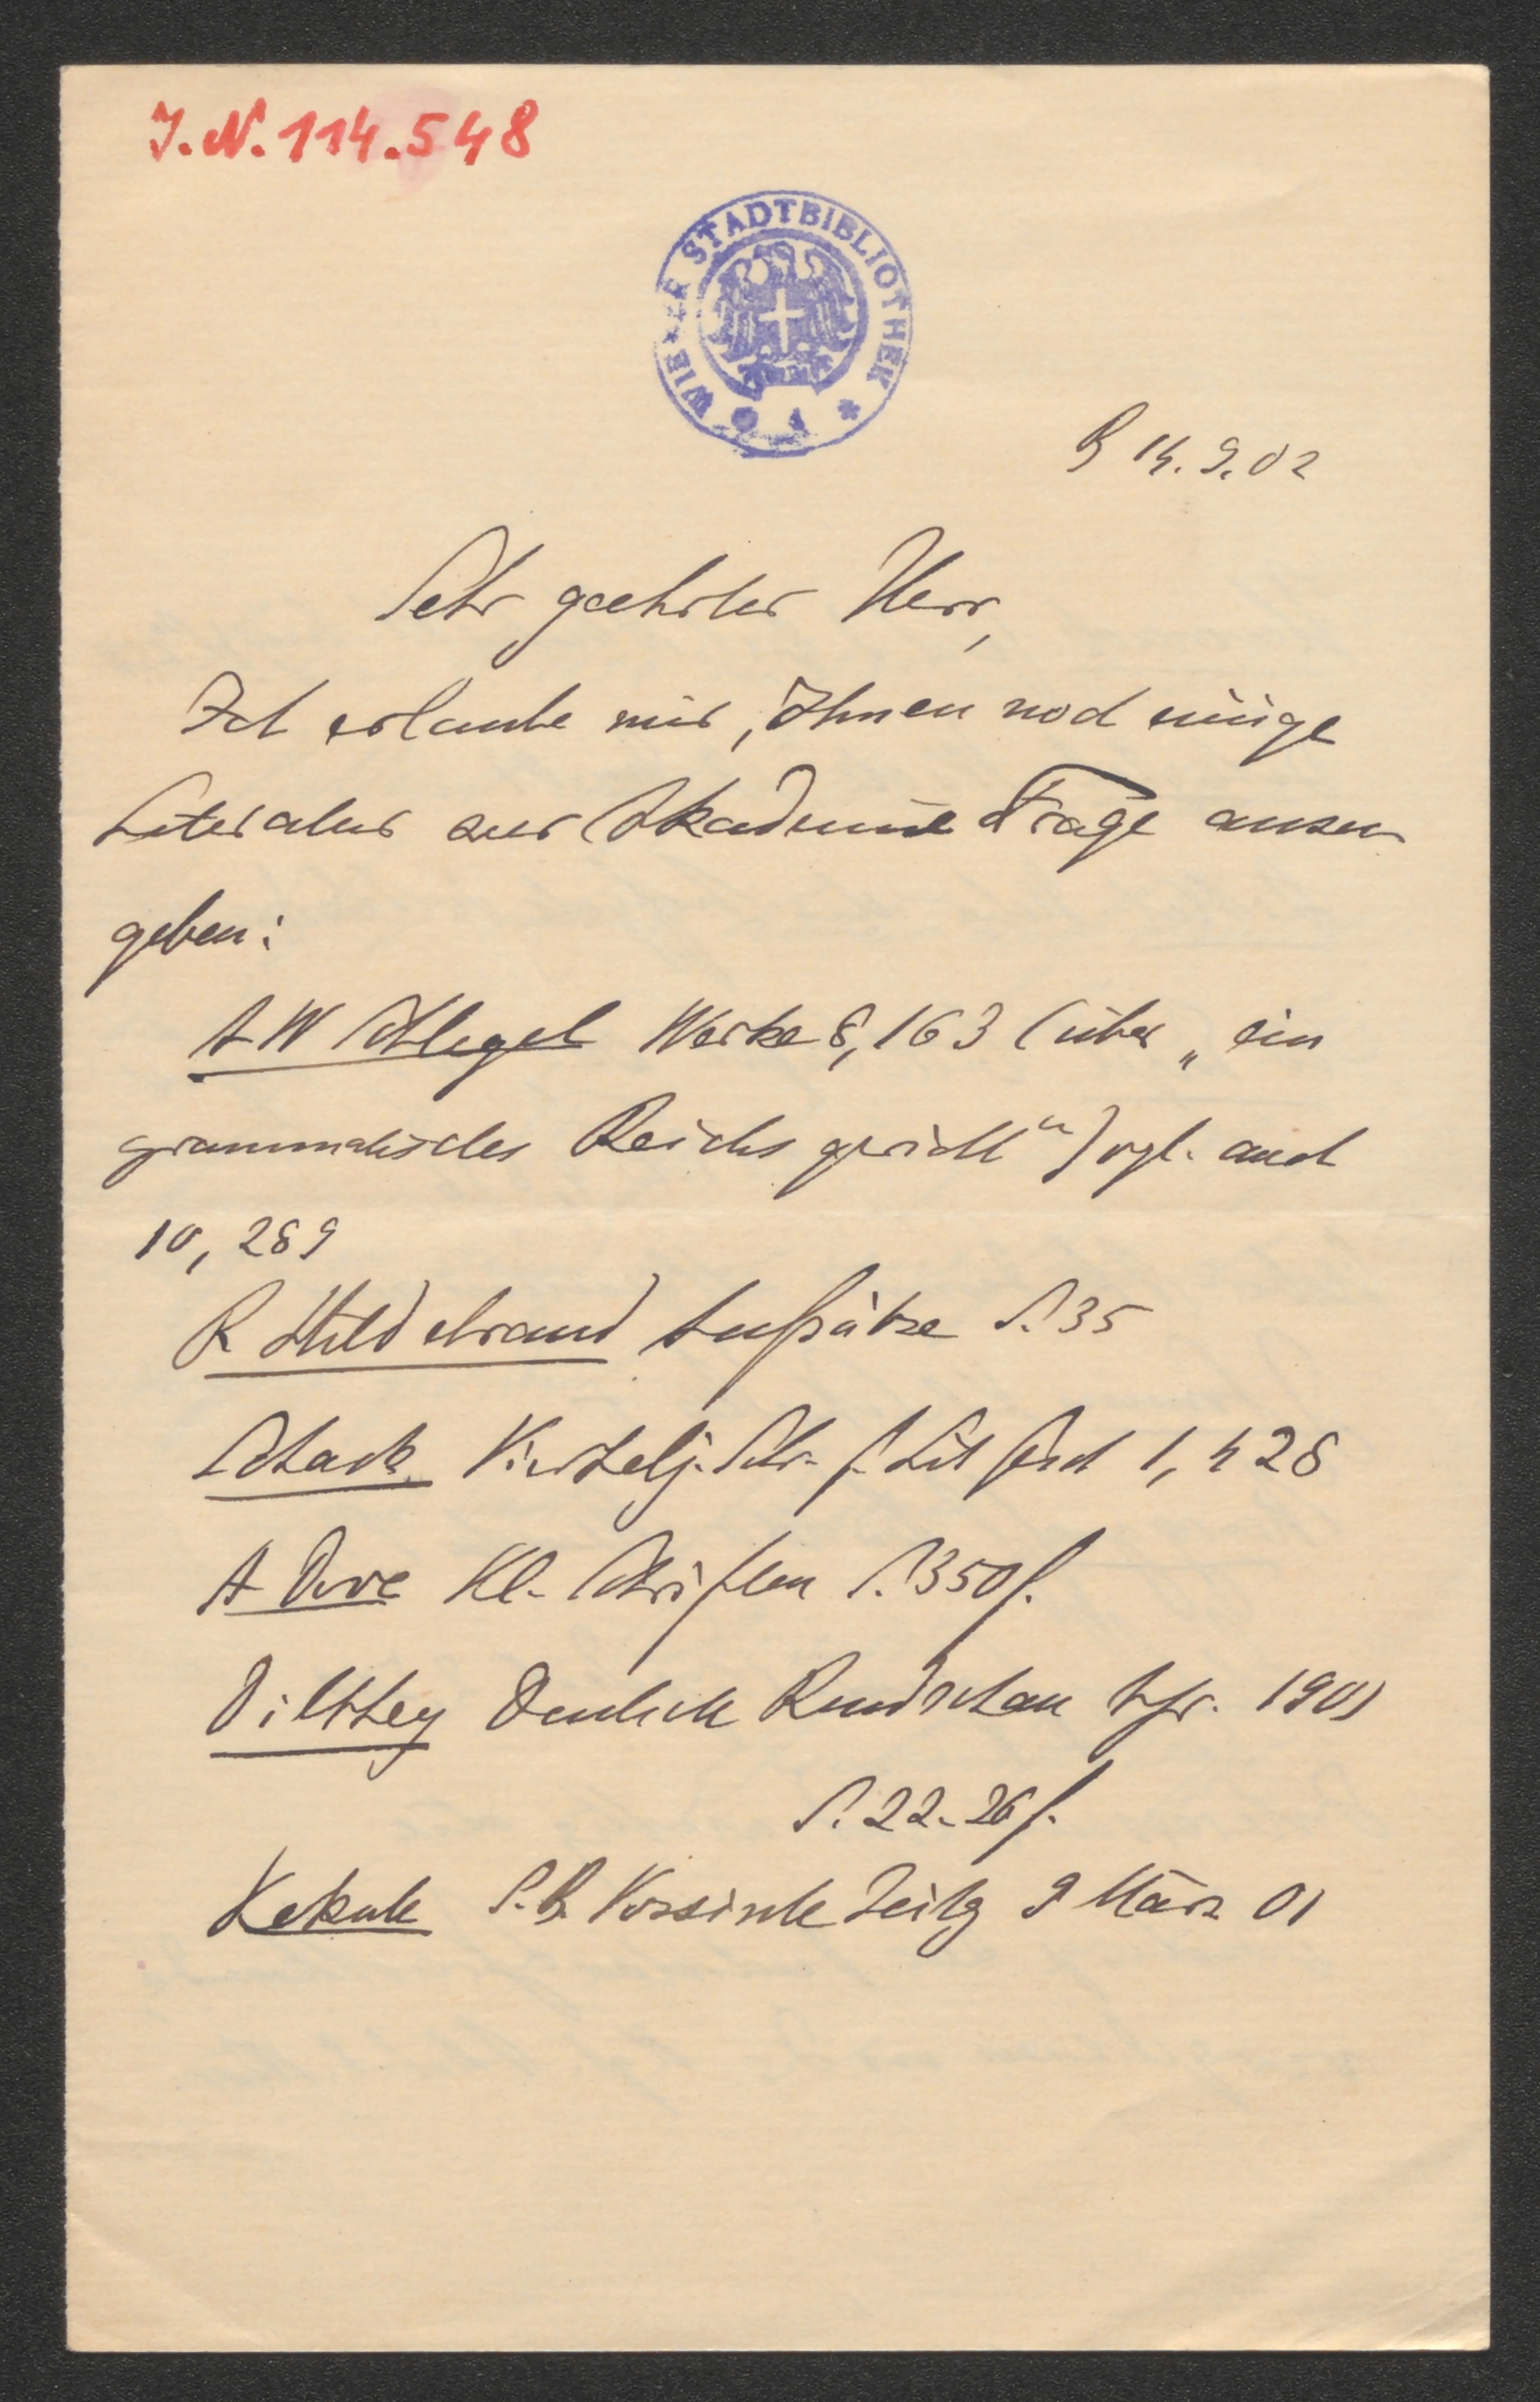 J.N. 114.548
WIENER STADTBIBLIOTHEK
B 14.9.02
Sehr geehrter Herr,
Ich erlaube mir, Ihnen noch einige
Literatur zur Akademie Frage anzu
geben:
A W Schlegel Werke 8, 163 (über „ein
grammatisches Reichsgericht“) vgl. auch
10, 289
R Hildebrand Aufsätze S. 35
Schack Viertelj. Schr. f. Lit Gesch 1, 428
A Dove Kl. Schriften S. 350f.
Dilthey Deutsche Rundschau Apr. 1901
S. 22-26f.
Kekule S.B. Vossische Zeitg 9 März 01